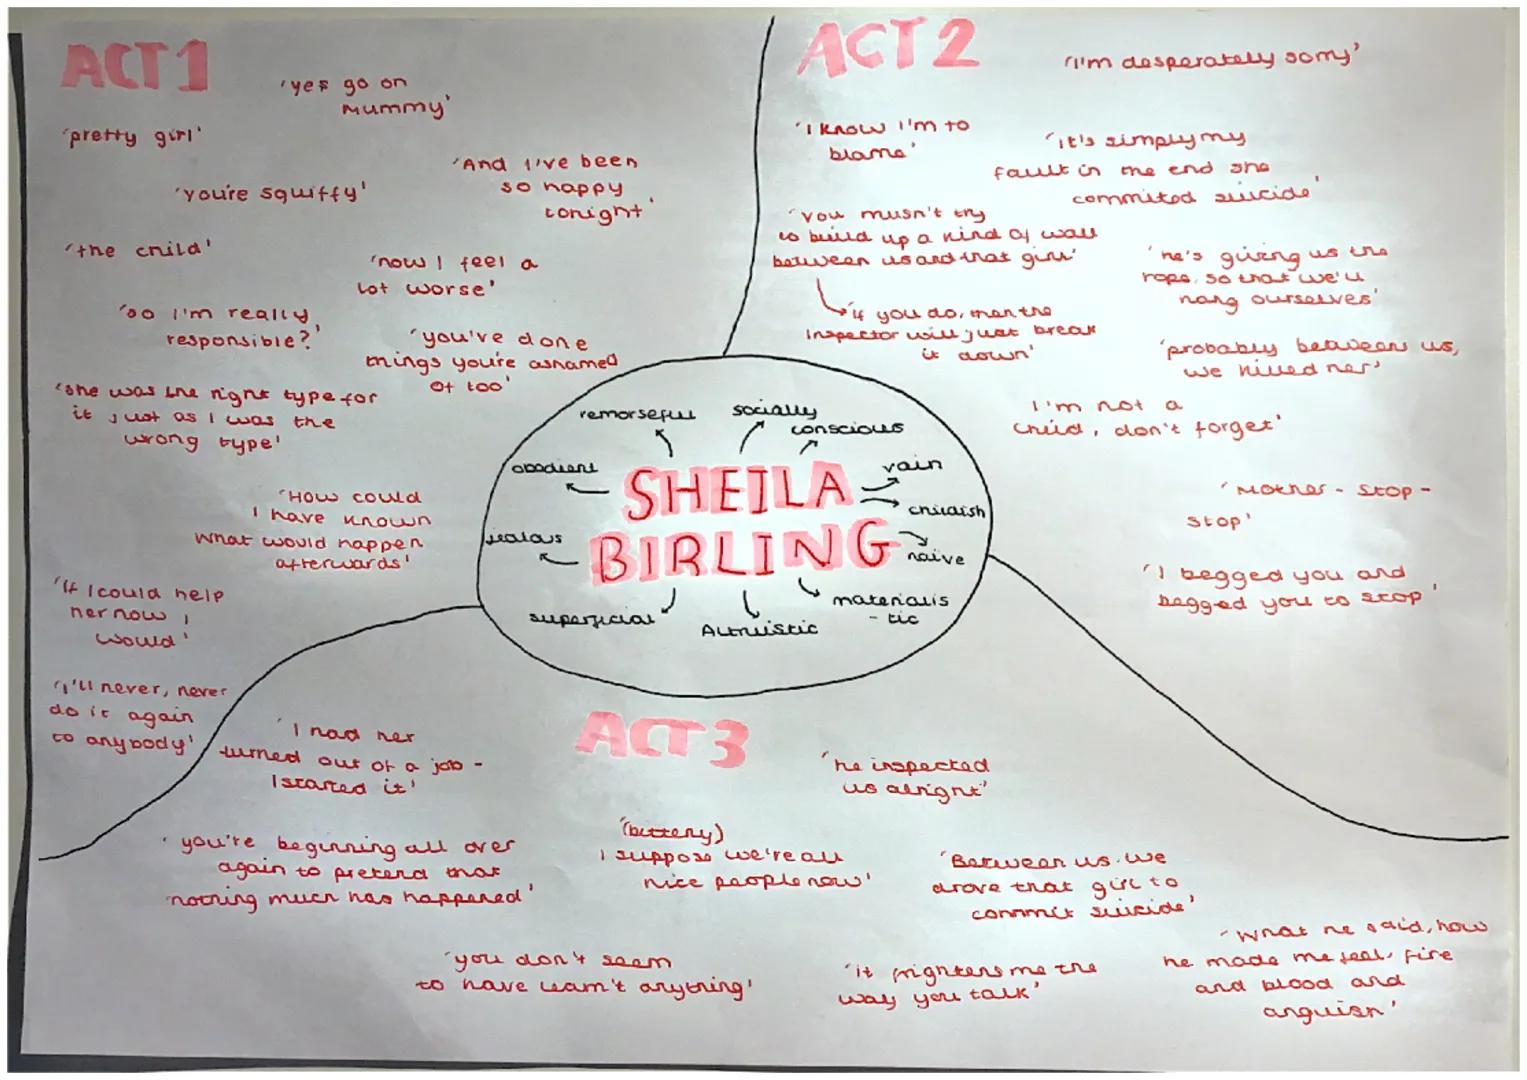 ACT 1
'yes go on
Mummy'
'pretty girl'
'And I've been
so happy
tonight'
'you're squiffy'
'the child'
'now I feel a
lot worse'
'so I'm really
responsible?'
'you've done
things you're ashamed
of too'
'she was the right type for
it just as I was the
wrong type'
'How could
I have known
what would happen
afterwards'
'If I could help
her now I
would'
'I'll never, never
do it again
to anybody'
ACT 2
'I'm desperately sorry'
'I know I'm to
blame'
'it's simply my
fault in the end she
commited suicide'
'you musn't try
to build up a kind of wall
between us and that girl'
'if you do, then the
Inspector will just break
it down'
'he's giving us the
rope, so that we'll
hang ourselves'
'probably between us,
we killed her'
I'm not a
child, don't forget'
'Mother - stop -
stop'
'I begged you and
begged you to stop'
remorseful
socially
conscious
obedient
vain
SHEILA
childish
jealous
BIRLING
naive
superficial
materialis
- tic
Altruistic
ACT 3
'I had her
turned out of a job -
I started it'
'he inspected
us alright'
'you're beginning all over
again to pretend that
nothing much has happened'
'(bitterly)
I suppose we're all
nice people now'
'Between us we
drove that girl to
commit suicide'
'you don't seem
to have learn't anything'
'it frightens me the
way you talk'
'What he said, how
he made me feel, fire
and blood and
anguish'